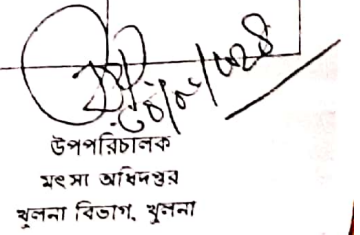 উপপরিচালক
মৎস্য অধিদপ্তর
খুলনা বিভাগ, খুলনা